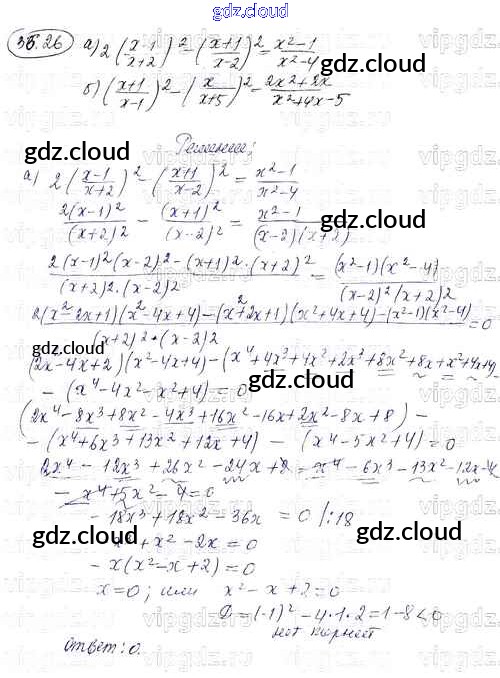 gdz.cloud
36.26 а) 2((x-1)/(x+2))² - ((x+1)/(x-2))² = (x²-1)/(x²-4)
gdz.cloud
б) ((x+1)/(x-1))² - (x/(x+5))² = (2x²+2x)/(x²+4x-5)
Решение:
gdz.cloud
а) 2((x-1)/(x+2))² - ((x+1)/(x-2))² = (x²-1)/(x²-4)
gdz.cloud
2(x-1)²/(x+2)² - (x+1)²/(x-2)² = (x²-1)/((x-2)(x+2))
(2(x-1)²(x-2)² - (x+1)²·(x+2)²)/((x+2)²·(x-2)²) = (x²-1)(x²-4)/((x-2)²(x+2)²)
(2(x²-2x+1)(x²-4x+4) - (x²+2x+1)(x²+4x+4) - (x²-1)(x²-4))/((x+2)²·(x-2)²) = 0
gdz.cloud
gdz.cloud
(2x-4x+2)(x²-4x+4) - (x⁴+4x³+4x²+2x³+8x²+8x+x²+4x+4)
- (x⁴-4x²-x²+4) = 0
(2x⁴-8x³+8x²-4x³+16x²-16x+2x²-8x+8) -
- (x⁴+6x³+13x²+12x+4) - (x⁴-5x²+4) = 0
2x⁴-12x³+26x²-24x+8-x⁴-6x³-13x²-12x-4
- x⁴+5x²-4=0
-18x³+18x²-36x = 0 /:18
gdz.cloud
gdz.cloud
-x³+x²-2x=0
-x(x²-x+2)=0
x=0; или x²-x+2=0
Д=(-1)²-4·1·2=1-8<0
нет корней
Ответ: 0.
gdz.cloud